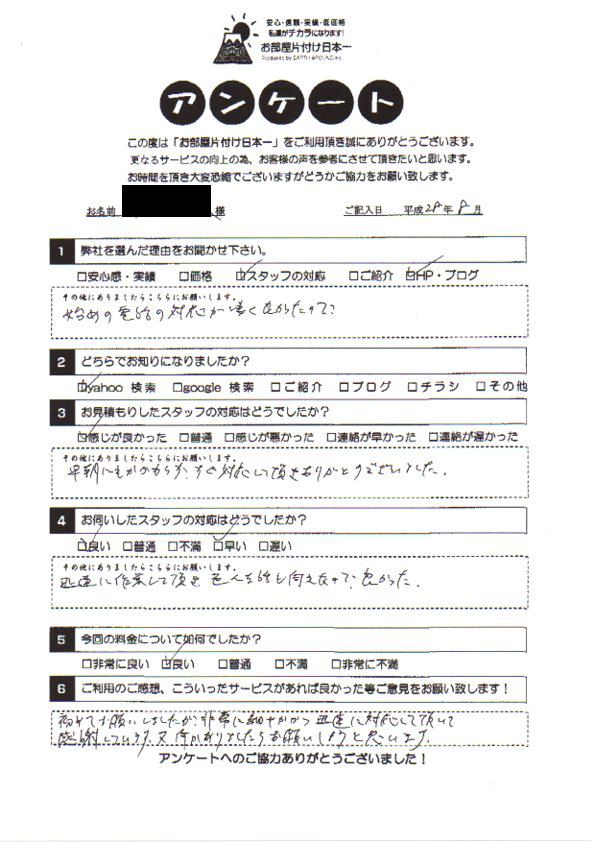 安心・信頼・実績・低価格
私達がチカラになります!
お部屋片付け日本一
Produced by EARTH
アンケート
この度は「お部屋片付け日本一」をご利用頂き誠にありがとうございます。
更なるサービスの向上の為、お客様の声を参考にさせて頂きたいと思います。
お時間を頂き大変恐縮でございますがどうかご協力をお願い致します。
お名前 様 ご記入日 平成28年8月
1 弊社を選んだ理由をお聞かせ下さい。
□安心感・実績 □価格 □スタッフの対応 □ご紹介 □HP・ブログ
その他にありましたらこちらにお願いします。
始めの電話の対応が凄く良かったので
2 どちらでお知りになりましたか?
□yahoo 検索 □google 検索 □ご紹介 □ブログ □チラシ □その他
3 お見積もりしたスタッフの対応はどうでしたか?
□感じが良かった □普通 □感じが悪かった □連絡が早かった □連絡が遅かった
その他にありましたらこちらにお願いします。
早朝にもかかわらず、すぐ対応して頂きありがとうございました。
4 お伺いしたスタッフの対応はどうでしたか?
□良い □普通 □不満 □早い □遅い
その他にありましたらこちらにお願いします。
迅速に作業して頂き 色んな話も伺えたので、良かった。
5 今回の料金について如何でしたか?
□非常に良い □良い □普通 □不満 □非常に不満
6 ご利用のご感想、こういったサービスがあれば良かった等ご意見をお願い致します!
初めてお願いしましたが、非常に細やかかつ迅速に対応して頂いて
感謝しています。又何かありましたらお願いしようと思います。
アンケートへのご協力ありがとうございました!